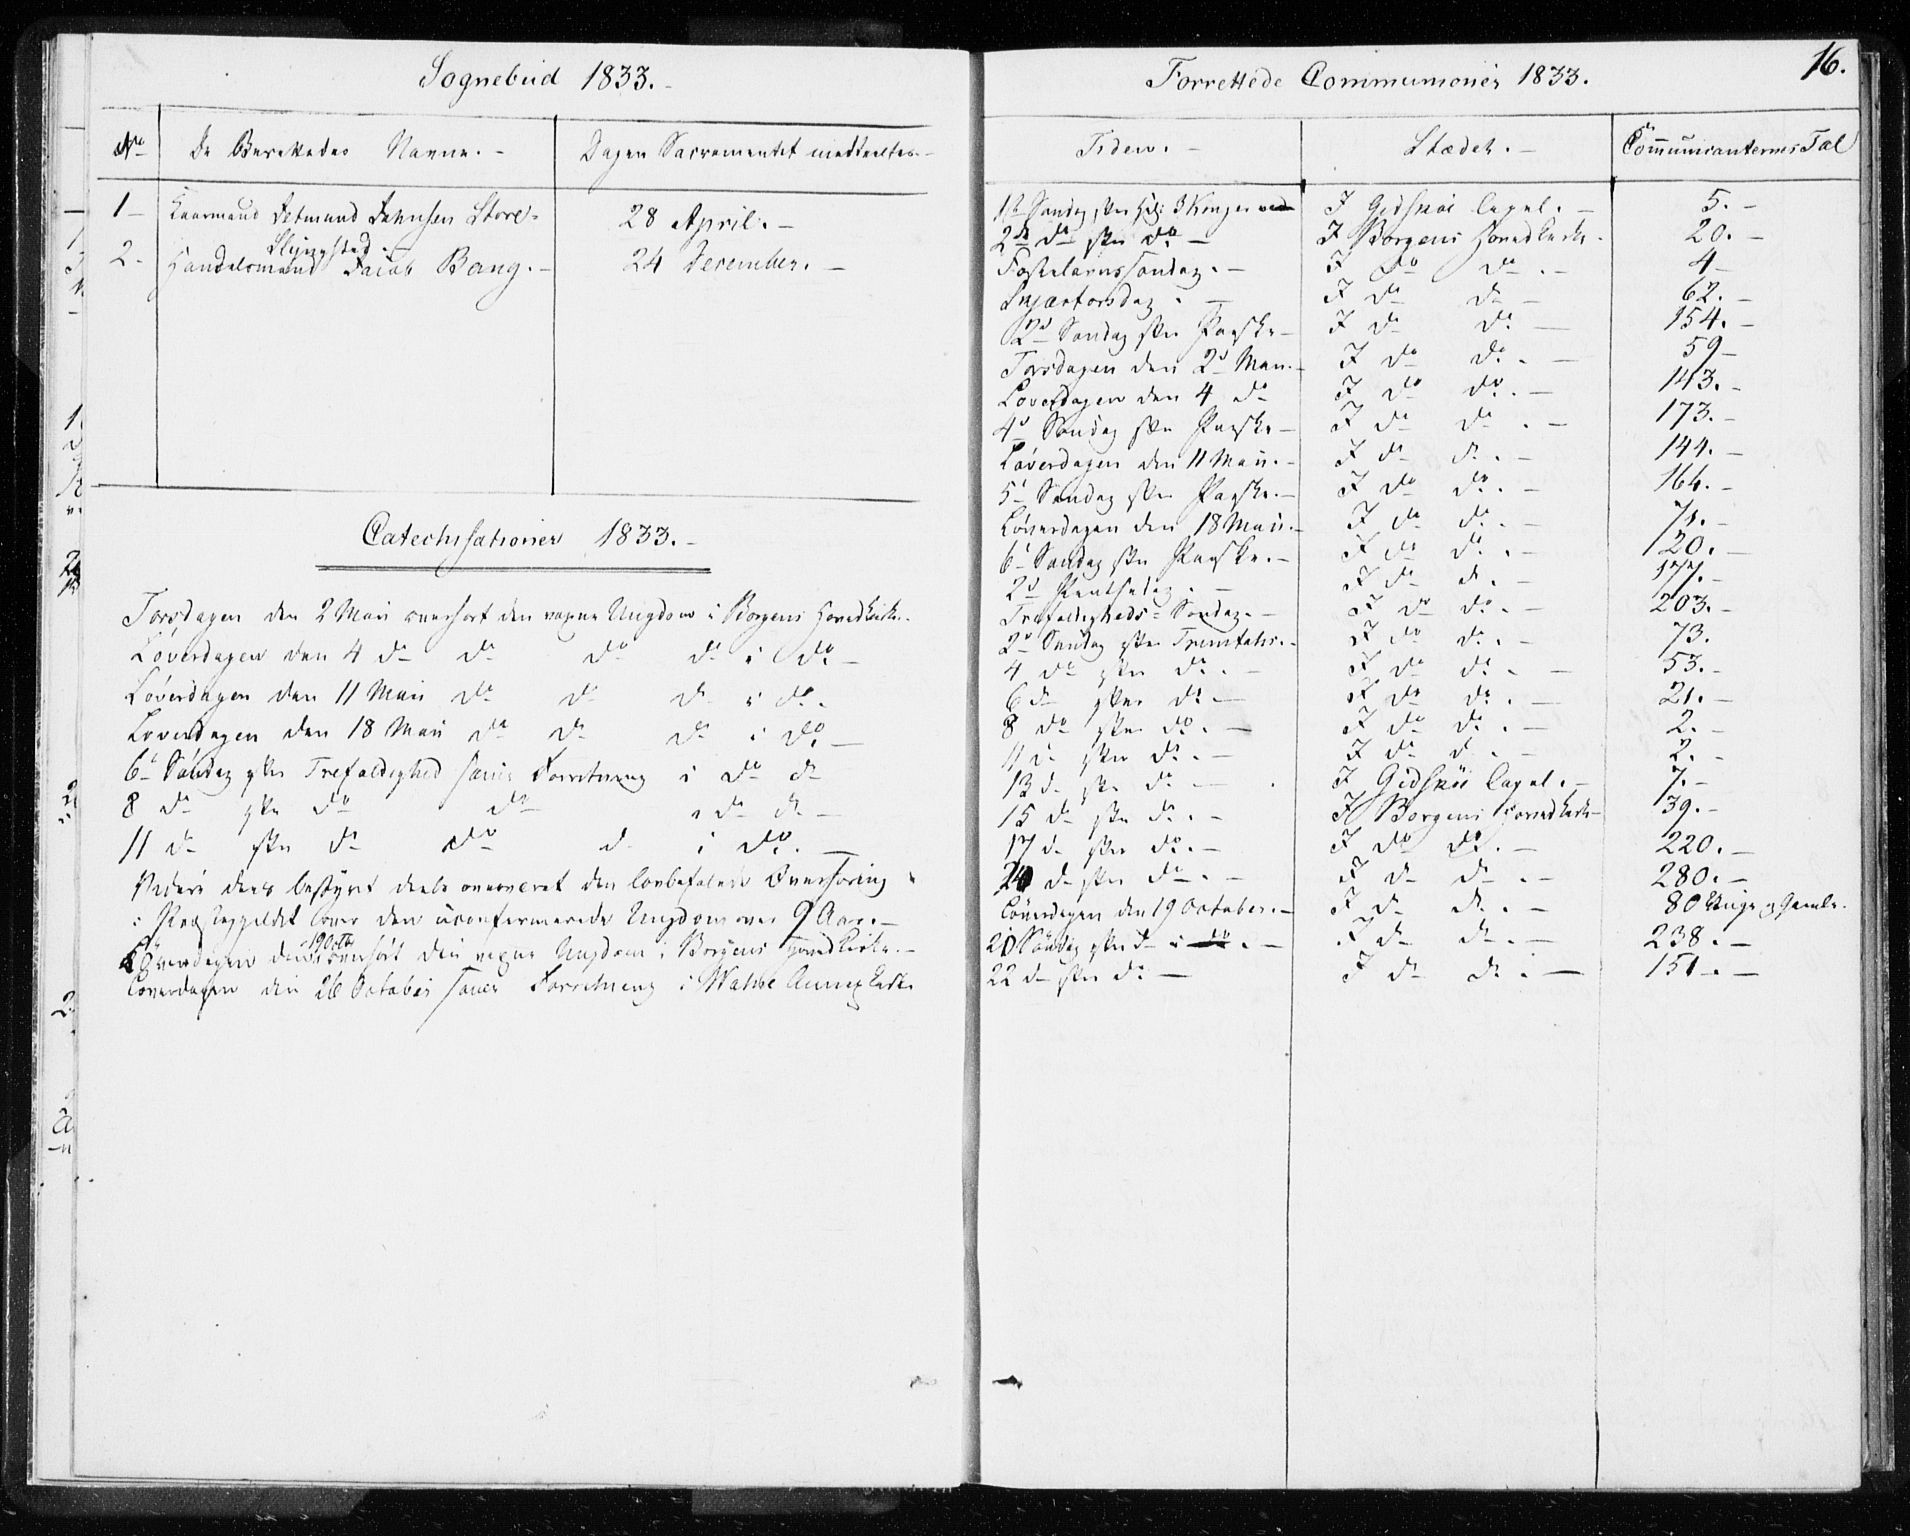 Sognebud 1833.-
No De Berettedes Navne.- Dagen Sacramentet meddeeltes.-
1- Kaarmand Detmand Johnsen Store- 28 April.-
Slyngstad.
2.- Handelsmand Jacob Bang.- 24 December.-
Catechisationer 1833.-
Torsdagen den 2 Maii overhørt den voxne Ungdom i Borgens Hovedkirke.
Løverdagen den 4 do do do do i do.-
Løverdagen den 11 Maii do do do i do.
Løverdagen den 18 Maii do do do i do.-
6te Søndag efter Trefoldighed samme Forretning i do do
8 do efter do do i do do.-
11 do efter do do do i do.-
Videre deels bestyret deels overværet den lovbefalede Overhøring
i Præstegjeldet over den uconfirmerede Ungdom over 9 Aar.-
Løverdagen den 19 Octbr overhørt den voxne Ungdom i Borgens Hovedkirke.-
Løverdagen den 26 October samme Forretning i Watne Annexkirke
16.
Forrettede Communioner 1833.
Tiden.- Stædet.- Communicanternes Tal
1ste Søndag efter Hel: 3 Konger I Gidskøe Capel.- 5.-
2den do efter do- I Borgens Hovedkirke. 20.-
Fastelavnssøndag.- I do do.- 4-
Skjærtorsdag.- I do do- 62.-
2den Søndag efter Paaske- I do do- 154.-
Torsdagen den 2den Maii.- I do do.- 59-
Løverdagen den 4 do I do do.- 143.-
4de Søndag efter Paaske- I do do.- 173.-
Løverdagen den 11 Maii.- I do do.- 144.-
5te Søndag efter Paaske.- I do do.- 166.-
Løverdagen den 18 Maii.- I do do.- 71.-
6te Søndag efter Paaske.- I do do.- 120.-
2den Pintsedag.- I do do.- 177.-
Trefoldigheds-Søndag.- I do do.- 203.-
2den Søndag efter Trinitatis.- I do do.- 73.
4 do efter do.- I do do.- 53.-
6 do efter do.- I do do.- 21.-
8 do efter do.- I do do.- 2.-
11 do efter do.- I do do.- 2.-
13 do efter do.- I Gidskøe Capel.- 7.-
15 do efter do.- I Borgens Hovedkirke- 39.-
17 do efter do.- I do do.- 220.-
do efter do.- I do do.- 280.-
Løverdagen den 19 October.- I do do.- 80 Unge og Gamle.
20 Søndag efter do i do.- I do do.- 238.-
22 do efter do- I do do.- 151.-